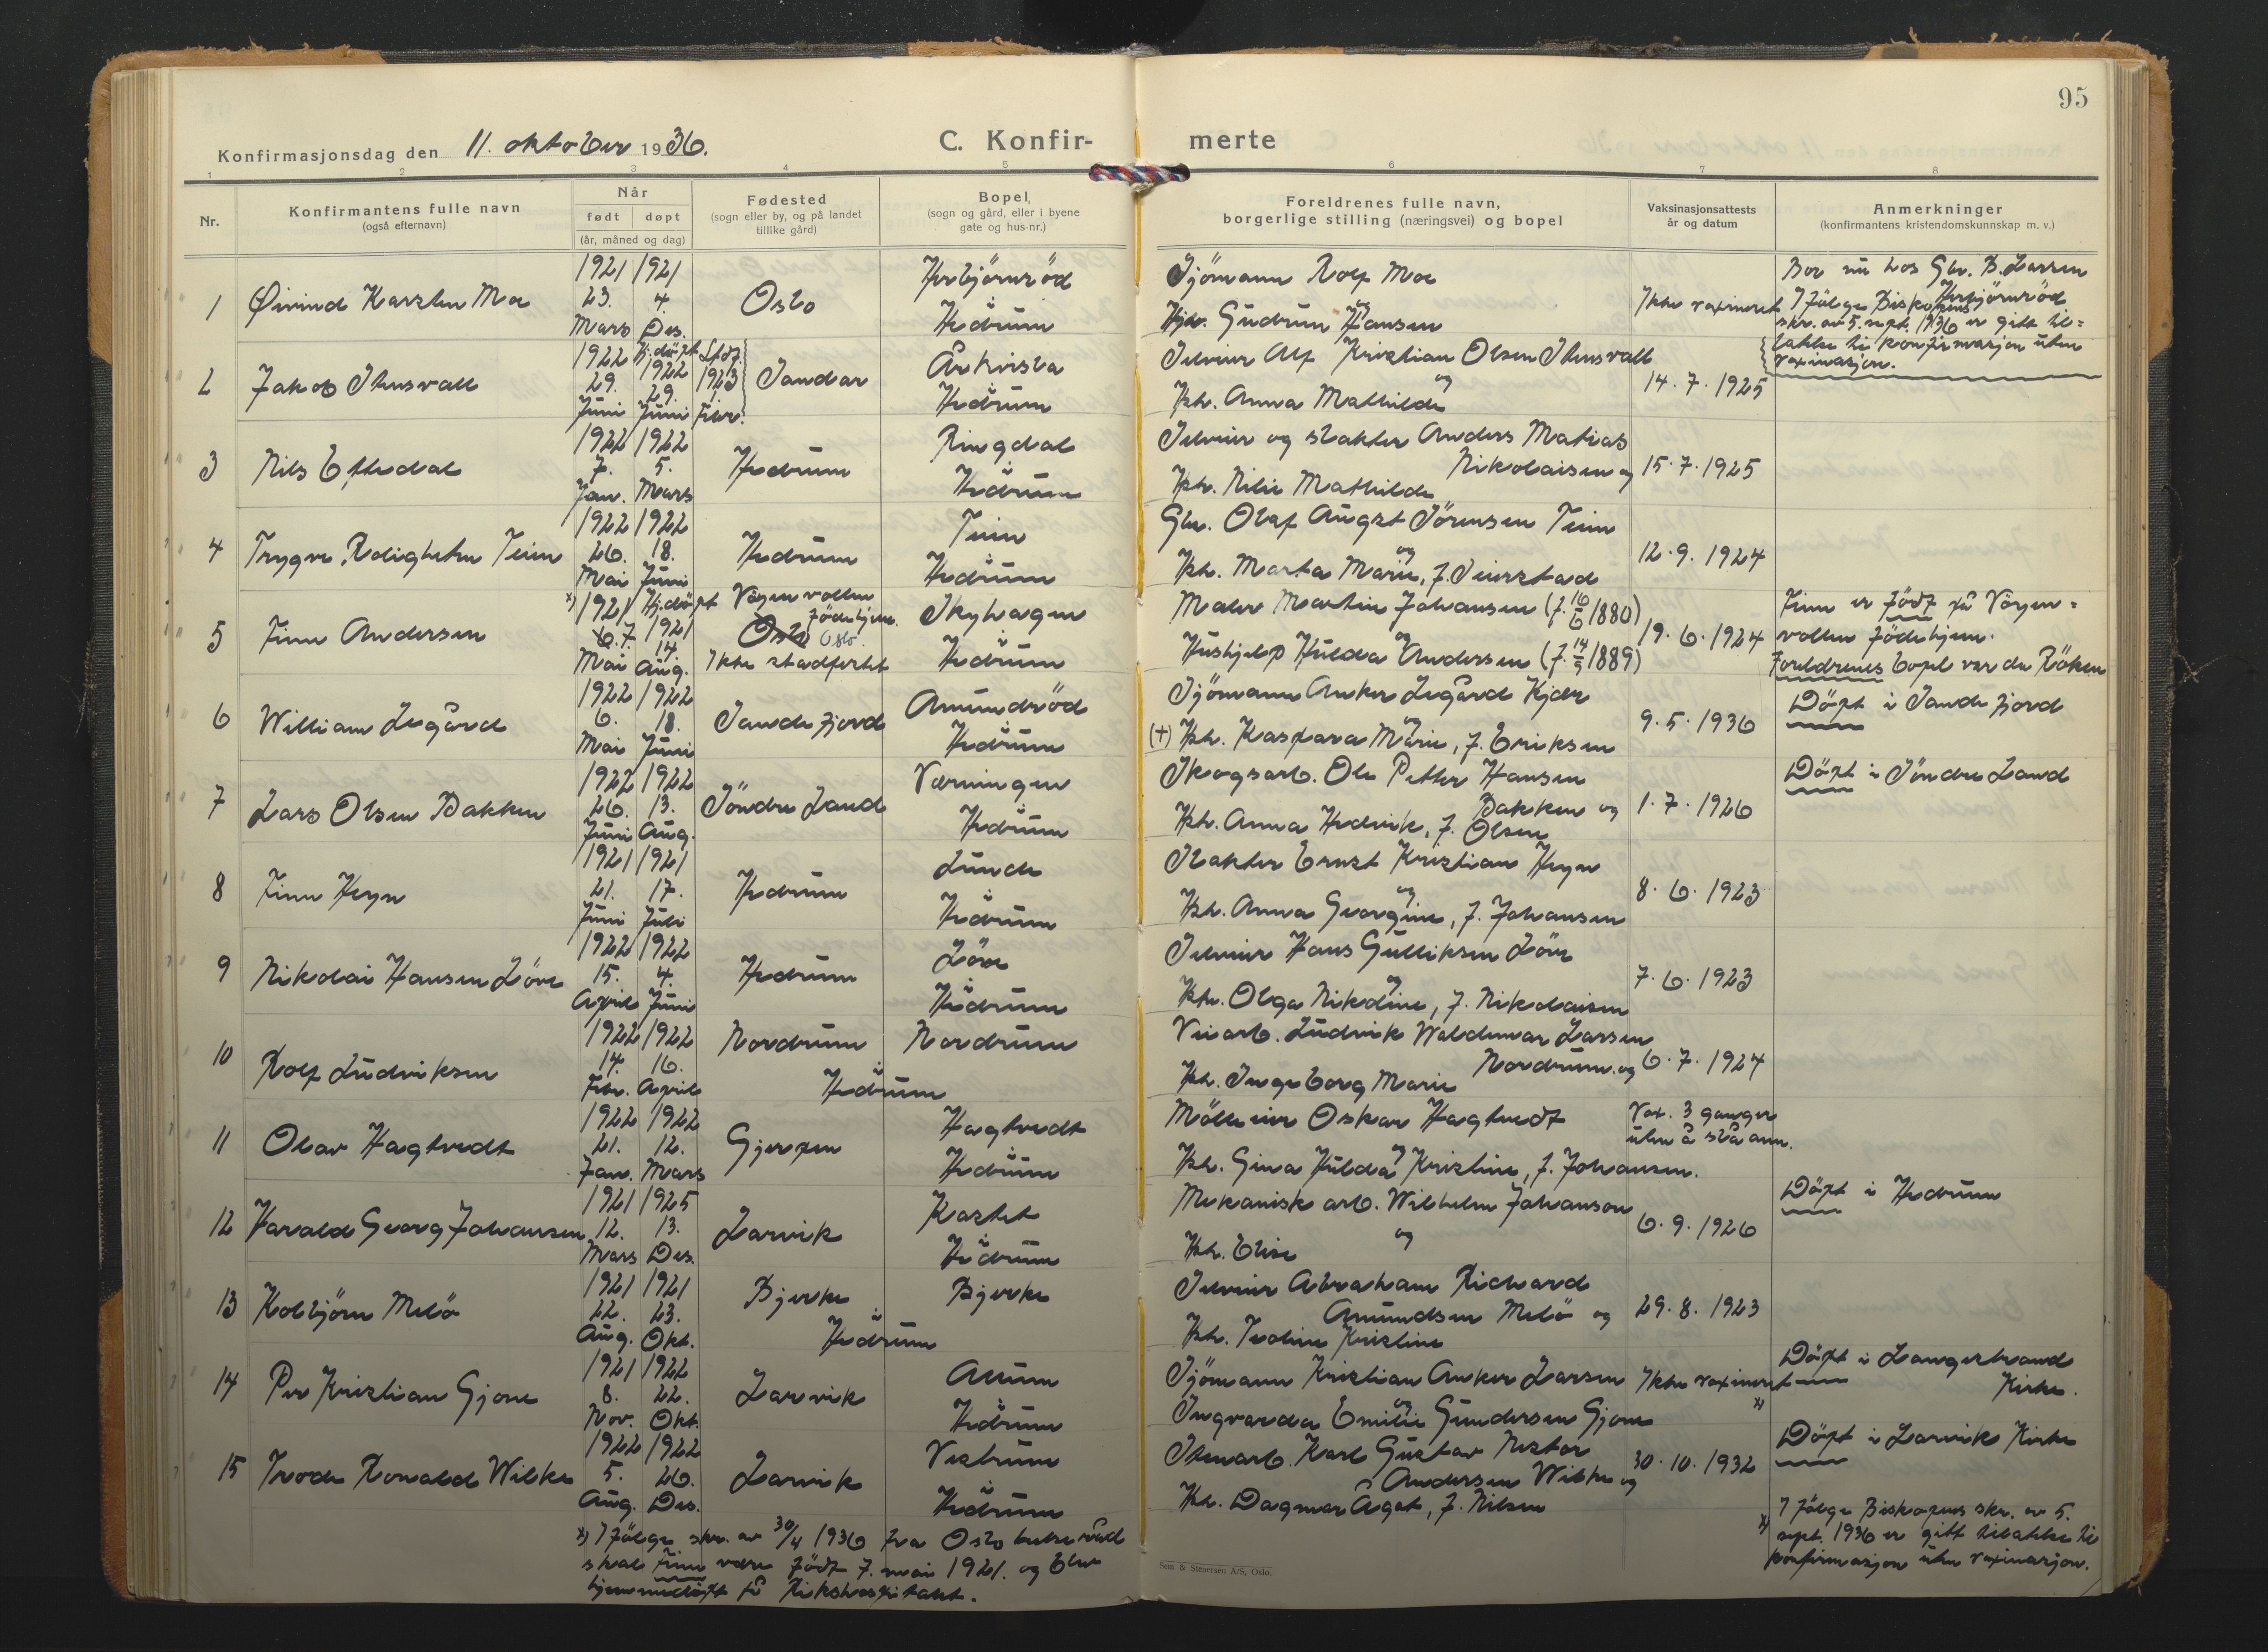 95
Konfirmasjonsdag den 11. oktober 1936.
C. Konfir-
merte
1 2 3 4 5 6 7 8
Nr.
Konfirmantens fulle navn
(også efternavn)
Når
født døpt
(år, måned og dag)
Fødested
(sogn eller by, og på landet
tillike gård)
Bopel,
(sogn og gård, eller i byene
gate og hus-nr.)
Foreldrenes fulle navn,
borgerlige stilling (næringsvei) og bopel
Vaksinasjonsattests
år og datum
Anmerkninger
(konfirmantens kristendomskunnskap m. v.)
1 Øivind Karsten Moe
1921 1921
23. 4.
Mars Des.
Oslo
Herbjörnröd
Hedrum
Sjömann Rolf Moe
og
Gudrun Hansen
Ikke vaxineret
Bor nu hos Gbr. B. Larsen
Herbjörnröd
I fölge Biskopens
skr. av 5. sept. 1936 er gitt til=
latelse til konfirmasjon uten
vaxinasjon.
2 Jakob Stensvall
1922 Hj.döpt Stdf.
29. 1922 1923
Juni 29. Juni 1. Febr.
Sandar
Årkvisla
Hedrum
Selveier Alf Kristian Olsen Stensvall
og
Hst. Anna Mathilde
14. 7. 1925
3 Nils Eftedal
1922 1922
7. 5.
Jan. Mars
Hedrum
Ringdal
i
Hedrum
Selveier og slakter Anders Matias
Nikolaisen og
Hst. Nilie Mathilde
15. 7. 1925
4 Trygve Redighelm Teien
1922 1922
26. 18.
Mai Juni
Hedrum
Teien
Hedrum
Gbr. Olaf August Sörensen Teien
og
Hst. Marta Marie, f. Seierstad
12. 9. 1924
5 Finn Andersen
x) 1921 Hj.döpt
6. 7 1921
Mai 14. Aug.
Vöyenvollen
födehjem.
Oslo Oslo.
Ikke stadfestet
Skyhagen
i
Hedrum
Maler Martin Johansen (f. 16/6 1880)
og
Hushjelp Hulda Andersen (f. 14/9 1889)
19. 6. 1924
Finn er född på Vöyen=
vollen födehjem.
Foreldrenes bopel var da Röken
6 William Legård
1922 1922
6. 18.
Mai Juni
Sandefjord
Amundröd
i
Hedrum
Sjömann Anker Legård Kjær
og
(+) Hst. Kaspara Marie, f. Eriksen
9. 5. 1936
Döpt i Sandefjord
7 Lars Olsen Bakken
1922 1922
26. 13.
Juni Aug.
Söndre Land
Værningen
i
Hedrum
Skogsarb. Ole Petter Hansen
Bakken og
Hst. Anna Hedvik, f. Olsen
1. 7. 1926
Döpt i Söndre Land
8 Finn Hegn
1921 1921
21. 17.
Juni Juli
Hedrum
Lunde
i
Hedrum
Slakter Ernst Kristian Hegn
og
Hst. Anna Georgine, f. Johansen
8. 6. 1923
9 Nikolai Hansen Löve
1922 1922
15. 4.
April Juni
Hedrum
Löve
i
Hedrum
Selveier Hans Gulliksen Löve
og
Hst. Olga Nikoline, f. Nikolaisen
7. 6. 1923
10 Rolf Ludviksen
1922 1922
14. 16.
Febr. April
Nordrum Nordrum
i
Hedrum
Veiarb. Ludvik Waldemar Larsen
Nordrum og
Hst. Ingeborg Marie
6. 7. 1924
11 Olav Hagtvedt
1922 1922
21. 12.
Jan. Mars
Gjerpen
Hagtvedt
i
Hedrum
Mölleeier Oskar Hagtvedt
og
Hst. Gina Hulda Kristine, f. Johansen.
Vax. 3 ganger
uten å slå ann.
12 Harald Georg Johansen
1921 1925
12. 13.
Mars Des.
Larvik
Kastet
i
Hedrum
Mekanisk arb. Wilhelm Johanson
og
Hst. Elise
6. 9. 1926
Döpt i Hedrum
13 Kolbjörn Melö
1921 1921
22. 23.
Aug. Okt.
Bjerke Bjerke
i
Hedrum
Selveier Abraham Richard
Amundsen Melö og
Hst. Teoline Kristine
29. 8. 1923
14 Per Kristian Gjone
1921 1922
8. 22.
Nov. Okt.
Larvik
Aurum
i
Hedrum
Sjömann Kristian Anker Larsen
og
Ingvarda Emilie Gundersen Gjone
Ikke vaxineret
x)
Döpt i Langestrand
Kirke.
15 Frode Ronald Wilke
1922 1922
5. 26.
Aug. Des.
Larvik
Vestrum
i
Hedrum
Stenarb. Karl Gustav Nestor
Andersen Wilke og
Hst. Dagmar Ågot, f. Nilsen
30. 10. 1932
Döpt i Larvik Kirke
x) I fölge skr. av 30/4 1936 fra Oslo
skal Finn være född 7. mai 1921. og blev
hjemmedöpt på Rikshospitalet.
x) I fölge Biskopens skr. av 5.
sept. 1936 er gitt tillatelse til
konfirmasjon uten vaxinasjon.
Sem & Stenersen A/S, Oslo.